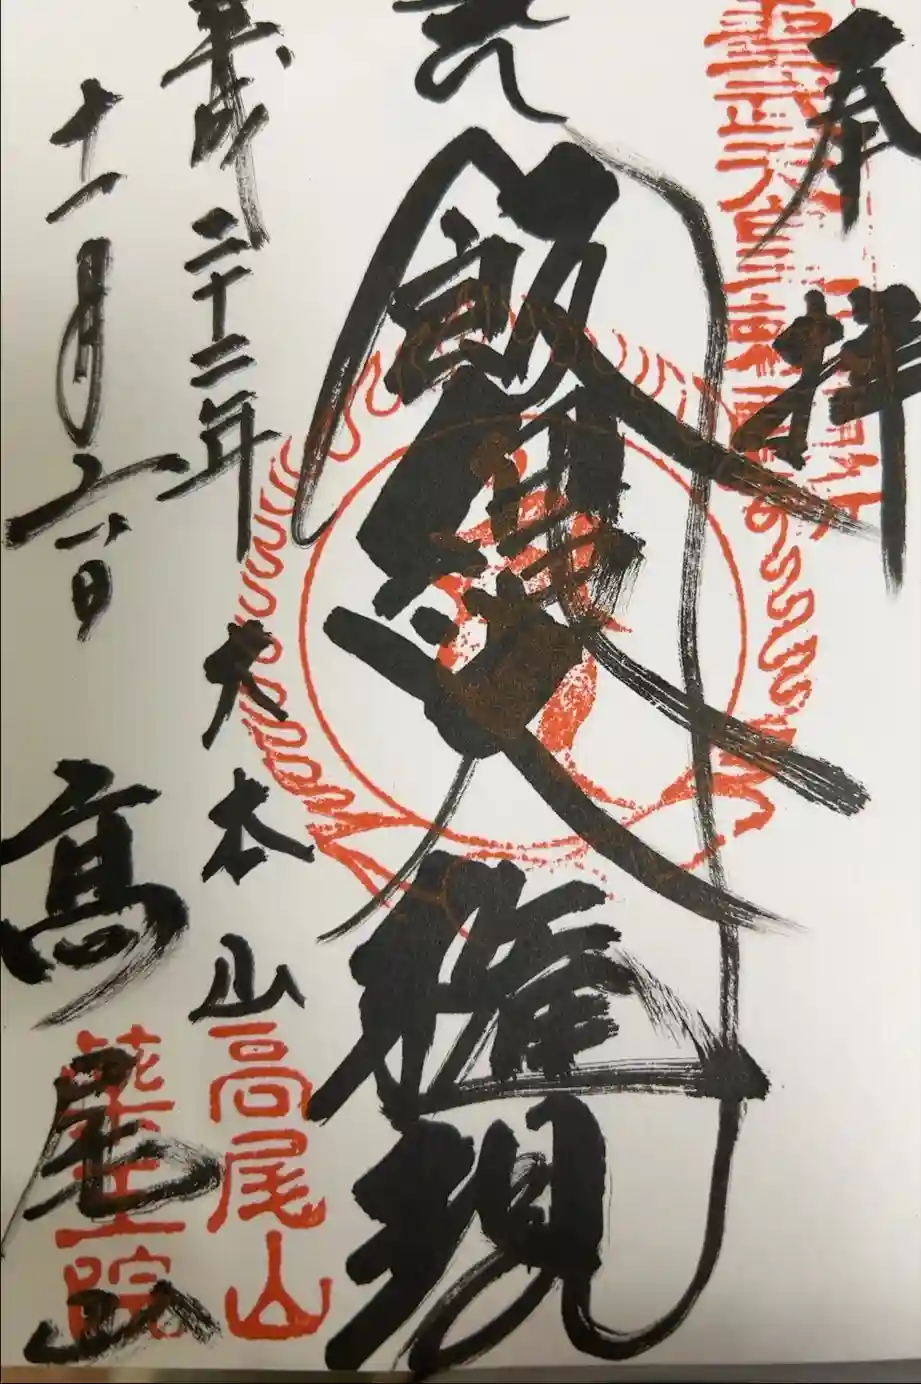 奉拝
飯縄大権現
平成二十二年
十一月六日
大本山
高尾山
高尾山
薬王院